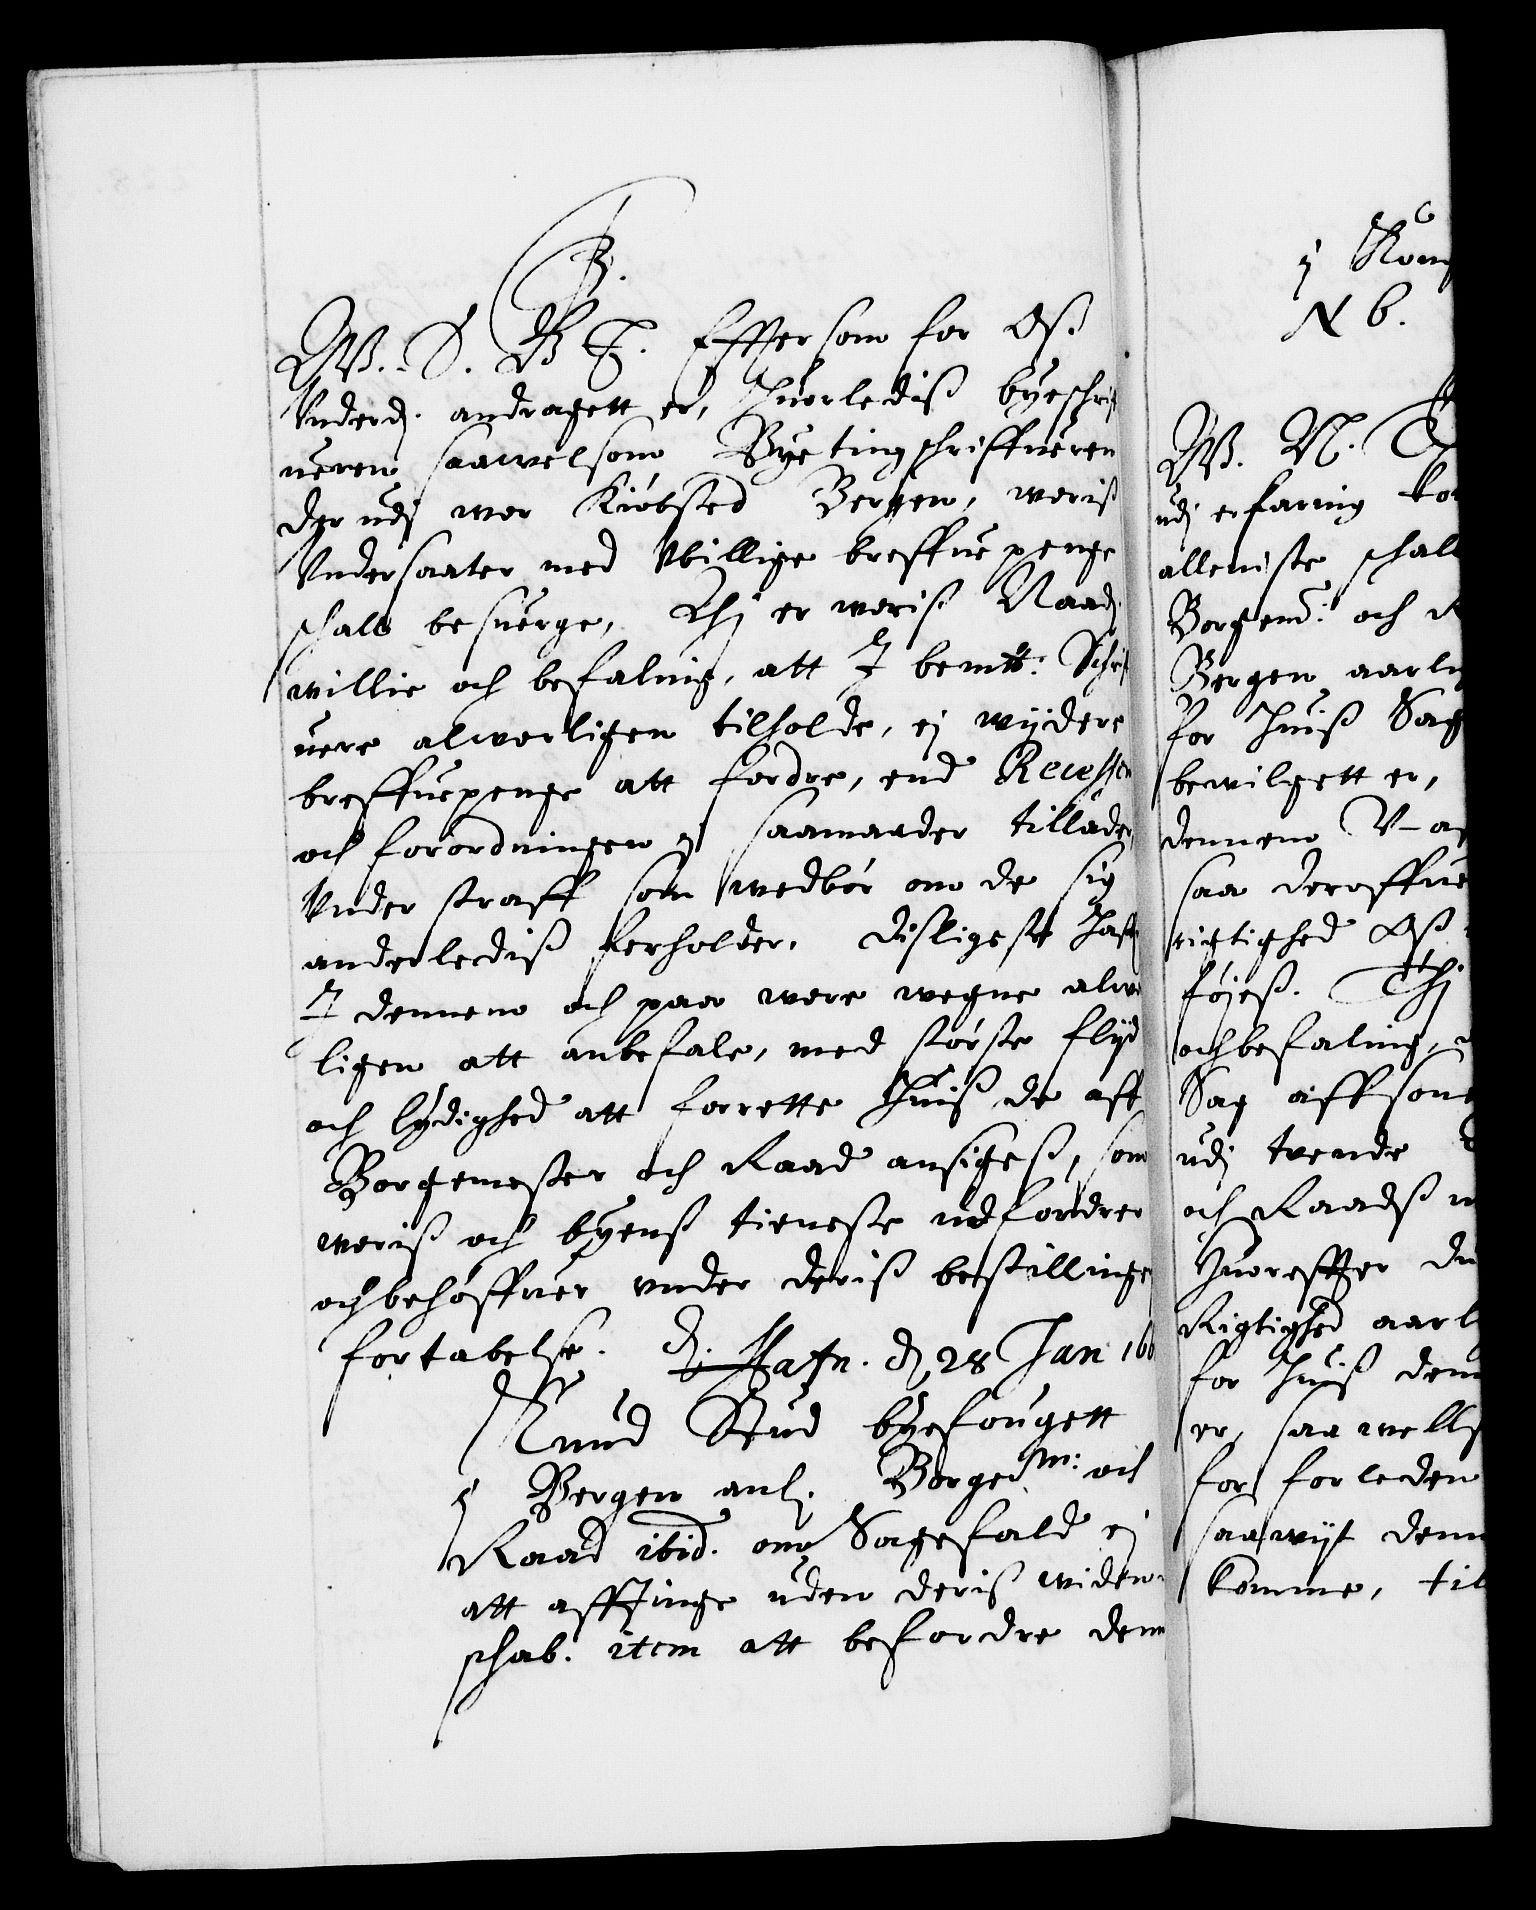 B.
W. S. B T. Efftersom for Oß
Underd. andragett er, huorlediß byeschrif
ueren saawelsom Byetingschriffueren
der udj wor Kiøbsted Bergen, woriß
Undersaater med Ubillige breffue penge
schall besuerge, Thj er woriß Naad.
willie och befaling, att I bemtt: Schrif
uere alworligen tilholde, ej wijdere
breffuepenge att fordre, end Recessen
och forordningen j saamaader tillader
Under straff som wedbør om de sig
anderlediß forholder. Disligeste haff
I dennem och paa wore wegne alwor
ligen att anbefale, med største flijd
och lydighed att forrette huiß de aff
Borgemester och Raad ansigeß, som
woriß och byenß tieneste udfordrer
och behøffuer under deriß bestillinge
fortabelse. Hafn. d. 28 Jan 166
Knud Stud byefougett
j Bergen anl. Borgem: och
Raad ibid. om Sagefald ej
att afftinge uden deriß widen-
schab. item att befordre denn
j Kong
N 6.
W. N. T
udj erfaring kom
alleniste schall
Borgem: och R
Bergen aarlig
for huiß Sag
bewilgett er,
dennem U-af
saa deroffue
rigtighed Oß
føjeß. Thj
och befaling,
Sag aff som
udj trende
och Raadß
huoreffter du
Rigtighed aarl
for huiß dem
er, saa wells
for forleden
saawijt denn
komme, til